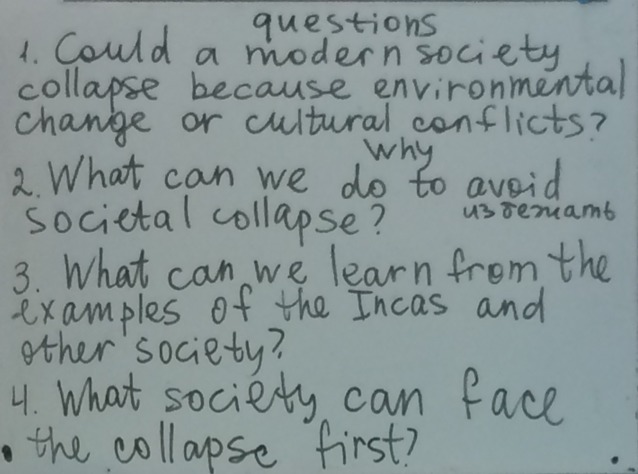 questions
1. Could a modern society
collapse because environmental
change or cultural conflicts?
Why
2. What can we do to avoid
societal collapse? избежать
3. What can we learn from the
examples of the Incas and
other society?
4. What society can face
the collapse first?